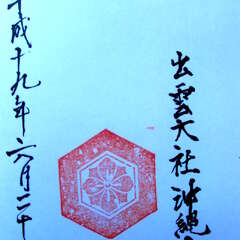 出雲大社沖縄
平成十九年六月二十